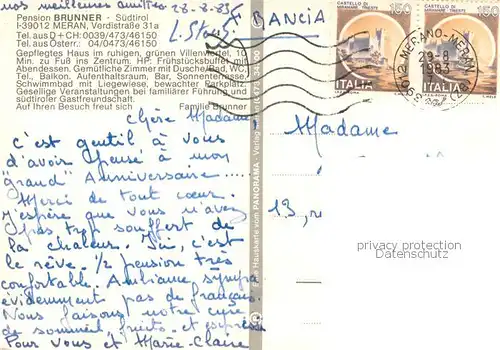 nos meilleures amitiés 28-8-83
Pension BRUNNER - Südtirol
I-39012 MERAN, Verdistraße 31a
Tel. aus D + CH: 0039/473/46150
Tel. aus Österr.: 04/0473/46150
Gepflegtes Haus im ruhigen, grünen Villenviertel, 10
Min. zu Fuß ins Zentrum. HP: Frühstücksbuffet mit
Abendessen. Gemütliche Zimmer mit Dusche/Bad, WC,
Tel., Balkon. Aufenthaltsraum, Bar, Sonnenterrasse,
Schwimmbad mit Liegewiese, bewachter Parkplatz.
Gesellige Veranstaltungen bei familiärer Führung und
südtiroler Gastfreundschaft.
Auf Ihren Besuch freut sich Familie Brunner
Chère Madame,
C'est gentil à vous
d'avoir pensé à mon
"grand" Anniversaire
Merci de tout cœur.
J'espère que vous n'avez
pas trop souffert de
la chaleur. Ici, c'est
le rêve. 1/2 pension très
confortable. Ambiance sympa
évidemment pas de français.
Nous faisons notre cure
de sommeil, fruits et
Pour vous et Marie-Claire
Eine Hauskarte vom PANORAMA - Verlag
CASTELLO DI
MIRAMARE TRIESTE
150
ITALIA
CASTELLO DI
MIRAMARE TRIESTE
150
ITALIA
39012 MERANO-MERAN
29-8
1983
Madame
13, r
PRIVATE
OBSERVATION